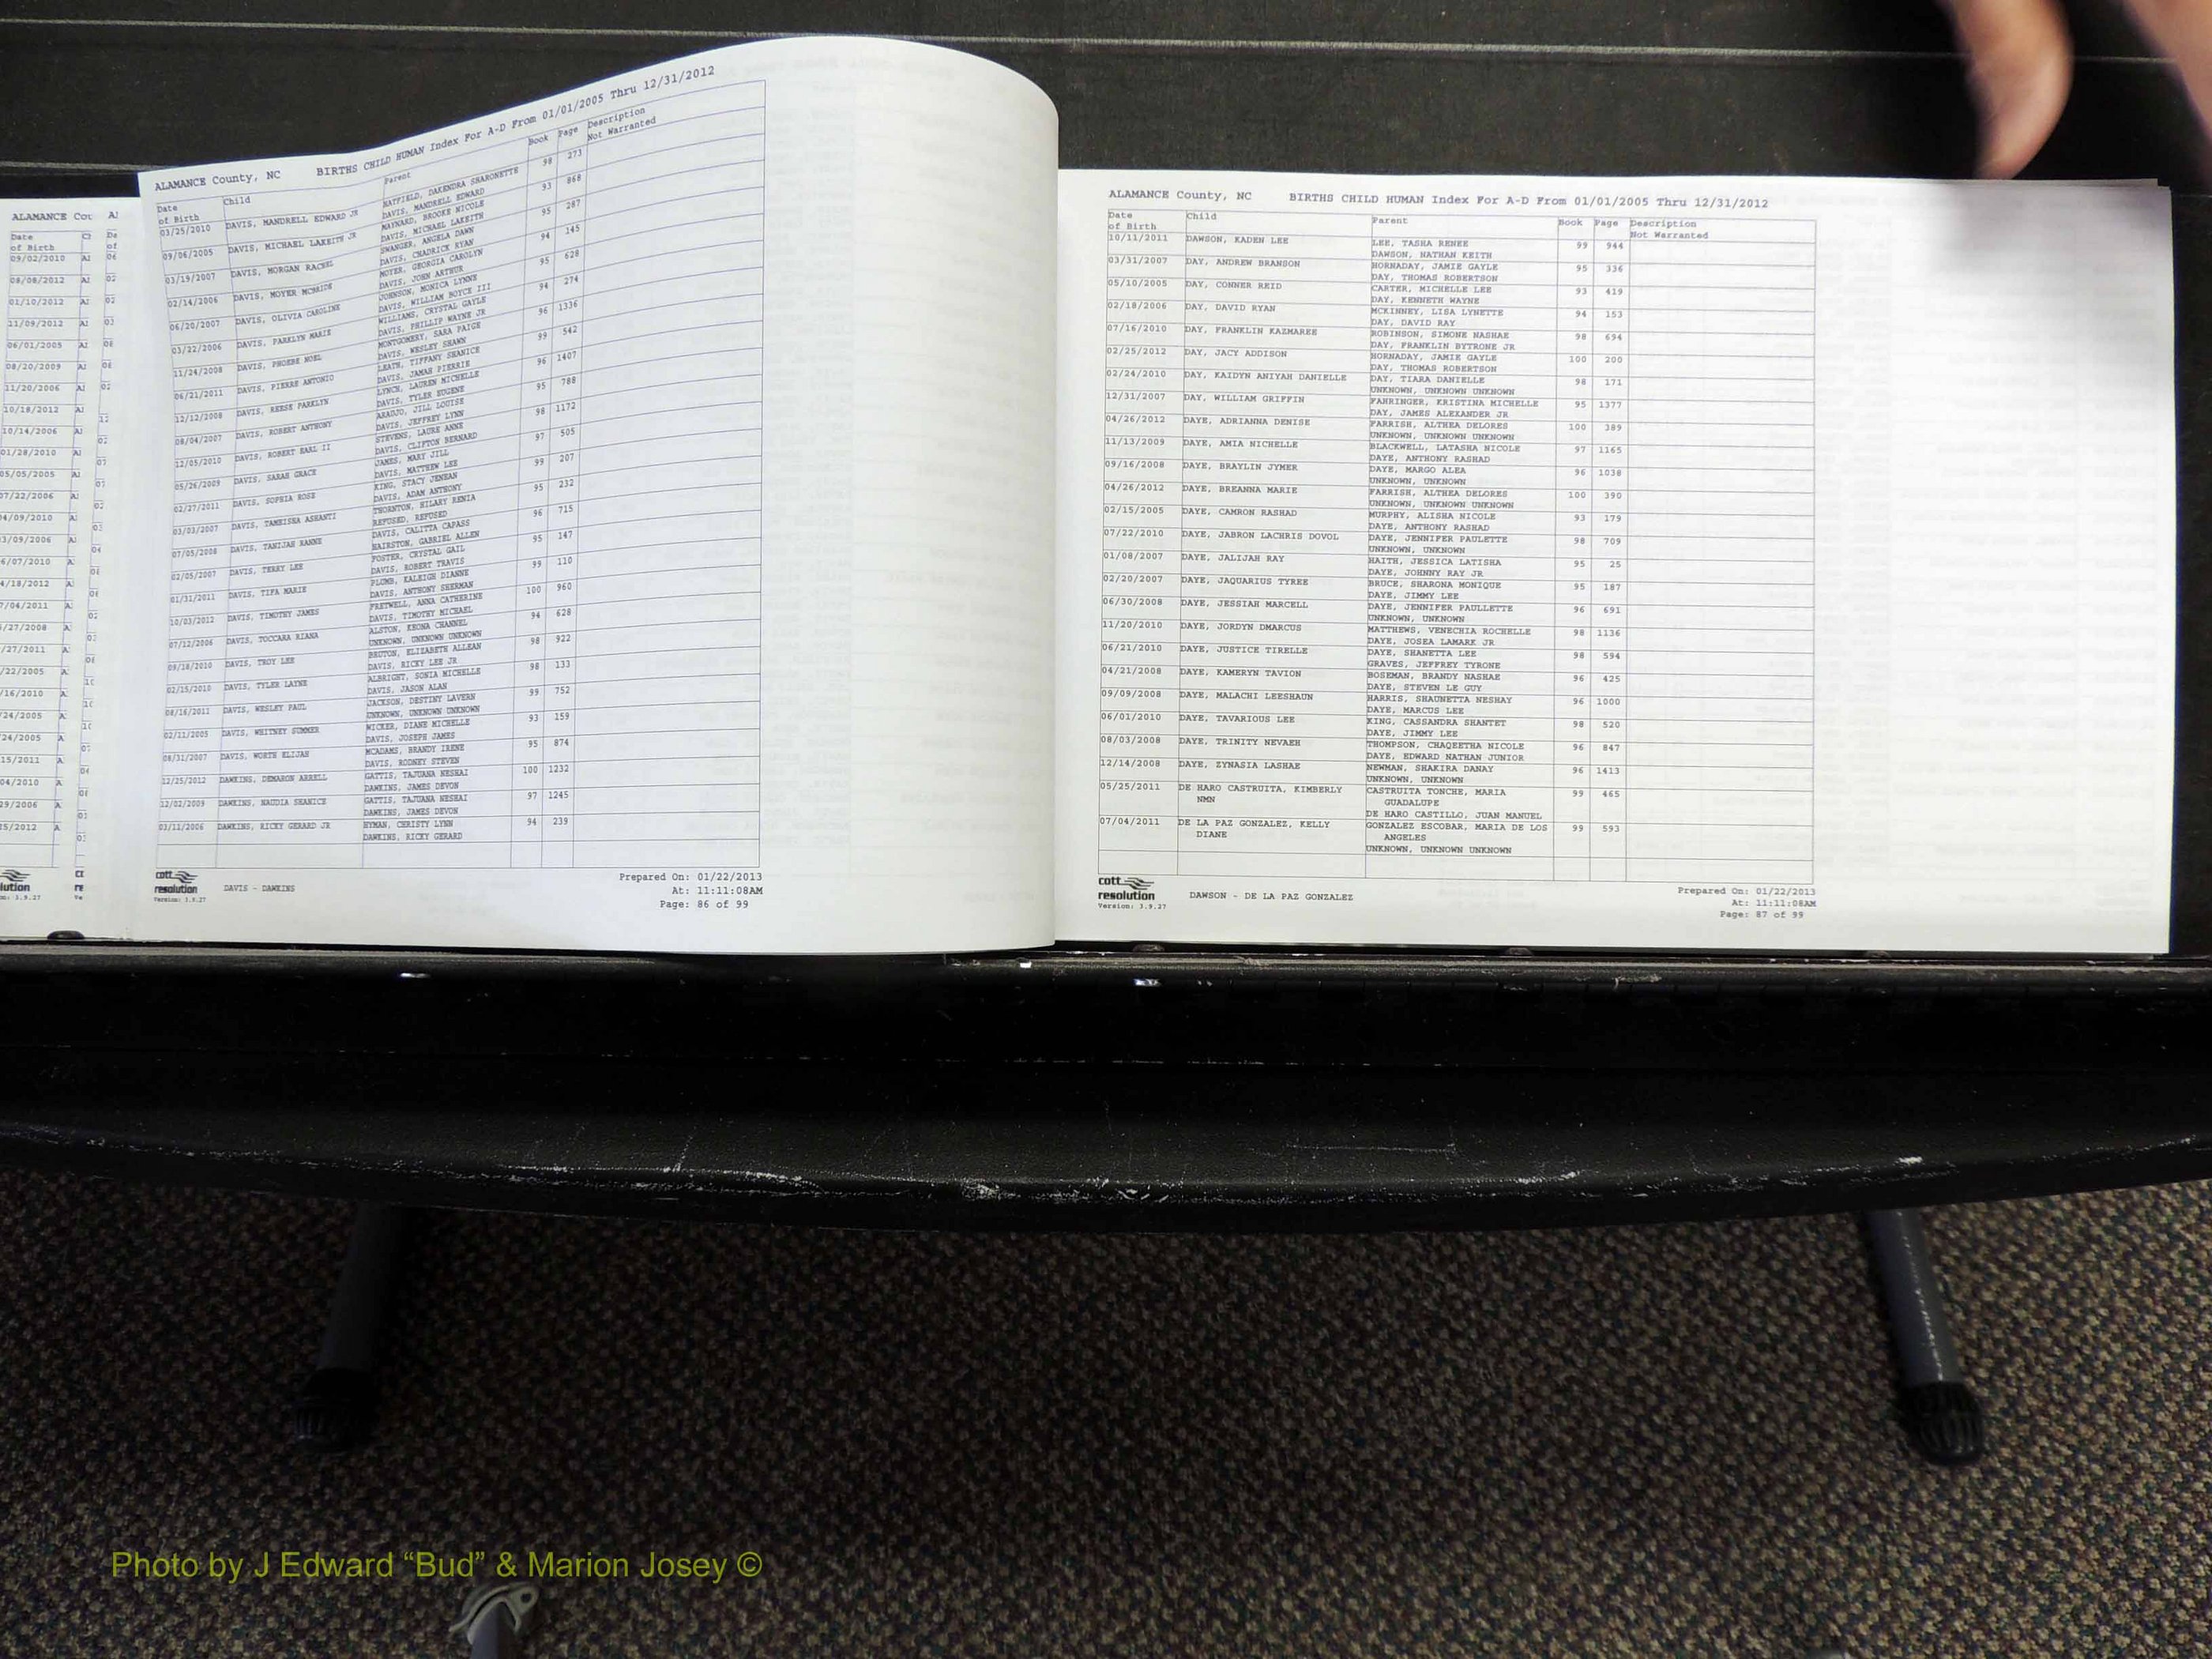 ALAMANCE Cou
Date
of Birth
09/02/2010
08/08/2012
01/10/2012
11/09/2012
06/01/2005
08/20/2009
11/20/2006
10/18/2012
10/14/2006
01/28/2010
05/05/2005
ALAMANCE County, NC BIRTHS CHILD HUMAN Index For A-D From 01/01/2005 Thru 12/31/2012
Date of Birth Child Parent Book Page Description
Not Warranted
03/25/2010 DAVIS, MANDRELL EDWARD JR HATFIELD, DAKENDRA SHARONETTE 98 273
DAVIS, MANDRELL EDWARD
09/06/2005 DAVIS, MICHAEL LAKEITH JR MAYNARD, BROOKE NICOLE 93 868
DAVIS, MICHAEL LAKEITH
03/19/2007 DAVIS, MORGAN RACHEL SWANGER, ANGELA DAWN 95 287
DAVIS, CHADRICK RYAN
02/14/2006 DAVIS, MOYER MCBRIDE MOYER, GEORGIA CAROLYN 94 145
DAVIS, JOHN ARTHUR
06/20/2007 DAVIS, OLIVIA CAROLINE JOHNSON, MONICA LYNNE 95 628
DAVIS, WILLIAM BOYCE III
03/22/2006 DAVIS, PARKLYN MARIE WILLIAMS, CRYSTAL GAYLE 94 274
DAVIS, PHILLIP WAYNE JR
11/24/2008 DAVIS, PHOEBE NOEL MONTGOMERY, SARA PAIGE 96 1336
DAVIS, WESLEY SHAWN
06/21/2011 DAVIS, PIERRE ANTONIO LEATH, TIFFANY SHANICE 99 542
DAVIS, JAMAH PIERRIE
12/12/2008 DAVIS, REESE PARKLYN LYNCH, LAUREN MICHELLE 96 1407
DAVIS, TYLER EUGENE
08/04/2007 DAVIS, ROBERT ANTHONY ARAUJO, JILL LOUISE 95 788
DAVIS, JEFFREY LYNN
12/05/2010 DAVIS, ROBERT EARL II STEVENS, LAURE ANNE 98 1172
DAVIS, CLIFTON BERNARD
05/26/2009 DAVIS, SARAH GRACE JAMES, MARY JILL 97 505
DAVIS, MATTHEW LEE
02/27/2011 DAVIS, SOPHIA ROSE KING, STACY JENEAN 99 207
DAVIS, ADAM ANTHONY
03/03/2007 DAVIS, TAMEISHA ASHANTI THORNTON, HILARY RENIA 95 232
REFUSED, REFUSED
07/05/2008 DAVIS, TANIJAH DAVIS, CALITTA CAPASS 96 715
HAIRSTON, GABRIEL ALLEN
02/05/2007 DAVIS, TERRY LEE FOSTER, CRYSTAL GAIL 95 147
DAVIS, ROBERT TRAVIS
01/31/2011 DAVIS, TIFA MARIE PLUMB, KALEIGH DIANNE 99 110
DAVIS, ANTHONY SHERMAN
10/03/2012 DAVIS, TIMOTHY JAMES FRETWELL, ANNA CATHERINE 100 960
DAVIS, TIMOTHY MICHAEL
07/12/2006 DAVIS, TOCCARA KIANA ALSTON, KEONA CHANNEL 94 628
UNKNOWN, UNKNOWN UNKNOWN
09/18/2010 DAVIS, TROY LEE BRUTON, ELIZABETH ALLEAN 98 922
DAVIS, RICKY LEE JR
02/15/2010 DAVIS, TYLER LAYNE ALBRIGHT, SONIA MICHELLE 98 133
DAVIS, JASON ALAN
08/16/2011 DAVIS, WESLEY PAUL JACKSON, DESTINY LAVERN 99 752
UNKNOWN, UNKNOWN UNKNOWN
02/11/2005 DAVIS, WHITNEY SUMMER WICKER, DIANE MICHELLE 93 159
DAVIS, JOSEPH JAMES
08/31/2007 DAVIS, WORTH ELIJAH MCADAMS, BRANDY IRENE 95 874
DAVIS, RODNEY STEVEN
12/25/2012 DAWKINS, DEMARON ARRELL GATTIS, TAJUANA NESHAI 100 1232
DAWKINS, JAMES DEVON
12/02/2009 DAWKINS, NAUDIA SHANICE GATTIS, TAJUANA NESHAI 97 1245
DAWKINS, JAMES DEVON
03/11/2006 DAWKINS, RICKY GERARD JR HYMAN, CHRISTY LYNN 94 239
DAWKINS, RICKY GERARD
cott
resolution
Version: 3.9.27
DAVIS - DAWKINS
Prepared On: 01/22/2013
At: 11:11:08AM
Page: 86 of 99
ALAMANCE County, NC BIRTHS CHILD HUMAN Index For A-D From 01/01/2005 Thru 12/31/2012
Date of Birth Child Parent Book Page Description
Not Warranted
10/11/2011 DAWSON, KADEN LEE LEE, TASHA RENEE 99 944
DAWSON, NATHAN KEITH
03/31/2007 DAY, ANDREW BRANSON HORNADAY, JAMIE GAYLE 95 336
DAY, THOMAS ROBERTSON
05/10/2005 DAY, CONNER REID CARTER, MICHELLE LEE 93 419
DAY, KENNETH WAYNE
02/18/2006 DAY, DAVID RYAN MCKINNEY, LISA LYNETTE 94 153
DAY, DAVID RAY
07/16/2010 DAY, FRANKLIN KAZMAREE ROBINSON, SIMONE NASHAE 98 694
DAY, FRANKLIN BYTRONE JR
02/25/2012 DAY, JACY ADDISON HORNADAY, JAMIE GAYLE 100 200
DAY, THOMAS ROBERTSON
02/24/2010 DAY, KAIDYN ANIYAH DANIELLE DAY, TIARA DANIELLE 98 171
UNKNOWN, UNKNOWN UNKNOWN
12/31/2007 DAY, WILLIAM GRIFFIN FAHRINGER, KRISTINA MICHELLE 95 1377
DAY, JAMES ALEXANDER JR
04/26/2012 DAYE, ADRIANNA DENISE FARRISH, ALTHEA DELORES 100 389
UNKNOWN, UNKNOWN UNKNOWN
11/13/2009 DAYE, AMIA NICHELLE BLACKWELL, LATASHA NICOLE 97 1165
DAYE, ANTHONY RASHAD
09/16/2008 DAYE, BRAYLIN JYMER DAYE, MARGO ALEA 96 1038
UNKNOWN, UNKNOWN
04/26/2012 DAYE, BREANNA MARIE FARRISH, ALTHEA DELORES 100 390
UNKNOWN, UNKNOWN UNKNOWN
02/15/2005 DAYE, CAMRON RASHAD MURPHY, ALISHA NICOLE 93 179
DAYE, ANTHONY RASHAD
07/22/2010 DAYE, JABRON LACHRIS DOVOL DAYE, JENNIFER PAULETTE 98 709
UNKNOWN, UNKNOWN
01/08/2007 DAYE, JALIJAH RAY HAITH, JESSICA LATISHA 95 25
DAYE, JOHNNY RAY JR
02/20/2007 DAYE, JAQUARIUS TYREE BRUCE, SHARONA MONIQUE 95 187
DAYE, JIMMY LEE
06/30/2008 DAYE, JESSIAH MARCELL DAYE, JENNIFER PAULLETTE 96 691
UNKNOWN, UNKNOWN
11/20/2010 DAYE, JORDYN DMARCUS MATTHEWS, VENECHIA ROCHELLE 98 1136
DAYE, JOSEA LAMARK JR
06/21/2010 DAYE, JUSTICE TIRELLE DAYE, SHANETTA LEE 98 594
GRAVES, JEFFREY TYRONE
04/21/2008 DAYE, KAMERYN TAVION BOSEMAN, BRANDY NASHAE 96 425
DAYE, STEVEN LE GUY
09/09/2008 DAYE, MALACHI LEESHAUN HARRIS, SHAUNETTA NESHAY 96 1000
DAYE, MARCUS LEE
06/01/2010 DAYE, TAVARIOUS LEE KING, CASSANDRA SHANTET 98 520
DAYE, JIMMY LEE
08/03/2008 DAYE, TRINITY NEVAEH THOMPSON, CHAQEETHA NICOLE 96 847
DAYE, EDWARD NATHAN JUNIOR
12/14/2008 DAYE, ZYNASIA LASHAE NEWMAN, SHAKIRA DANAY 96 1413
UNKNOWN, UNKNOWN
05/25/2011 DE HARO CASTRUITA, KIMBERLY CASTRUITA TONCHE, MARIA 99 465
NMN GUADALUPE
DE HARO CASTILLO, JUAN MANUEL
07/04/2011 DE LA PAZ GONZALEZ, KELLY GONZALEZ ESCOBAR, MARIA DE LOS 99 593
DIANE ANGELES
UNKNOWN, UNKNOWN UNKNOWN
cott
resolution
Version: 3.9.27
DAWSON - DE LA PAZ GONZALEZ
Prepared On: 01/22/2013
At: 11:11:08AM
Page: 87 of 99
Photo by J Edward “Bud” & Marion Josey ©